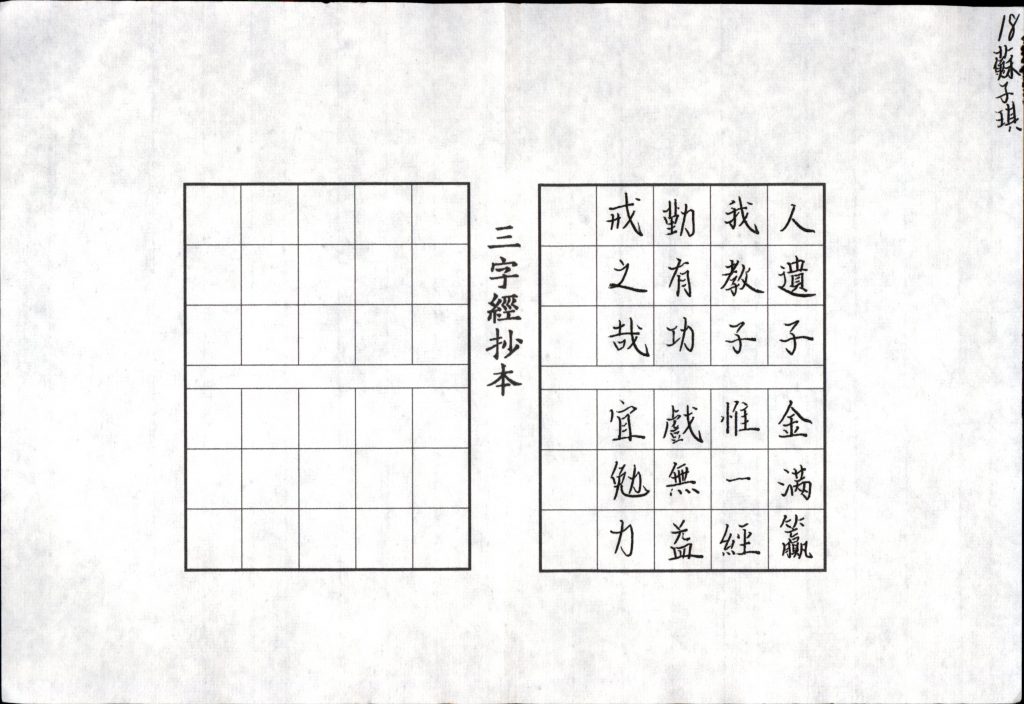 18蘇子琪
人遺子金滿籯
我教子惟一經
勤有功戲無益
戒之哉宜勉力
三字經抄本